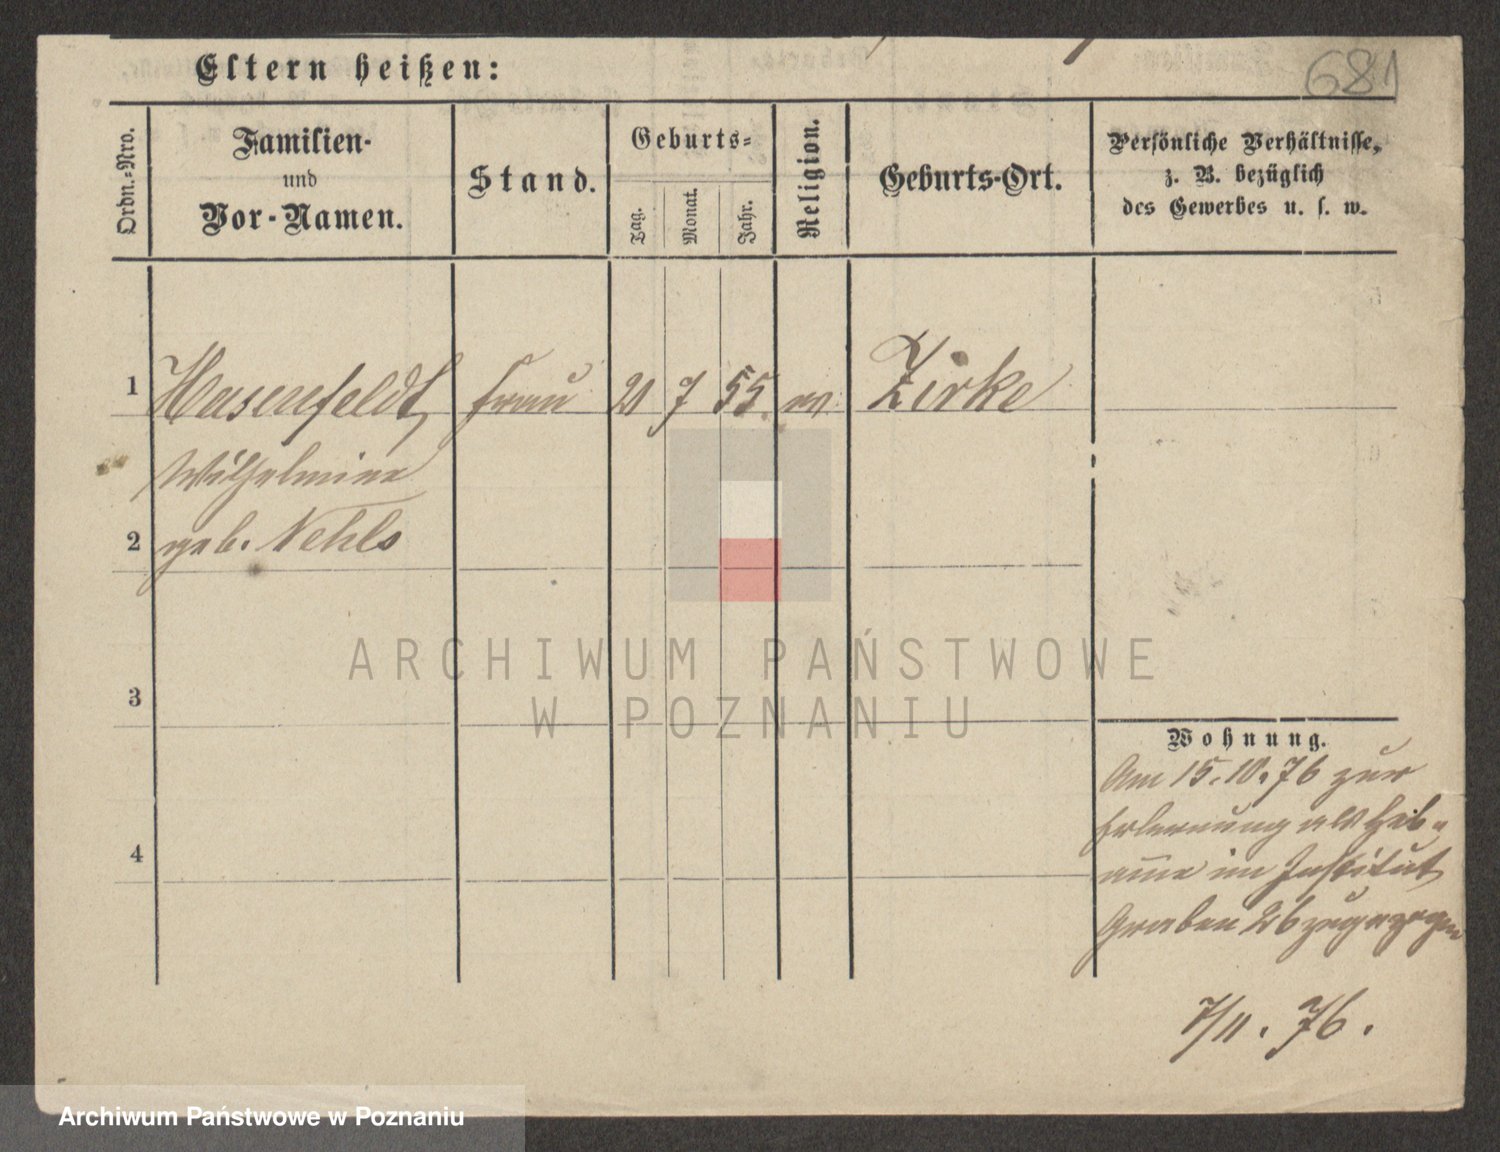 681
Eltern heißen:
Ordn.-Nro.
Familien-
und
Vor-Namen.
Stand.
Geburts-
Tag.
Monat.
Jahr.
Religion.
Geburts-Ort.
Persönliche Verhältnisse,
z. B. bezüglich
des Gewerbes u. s. w.
1
Hasenfeldt,
Frau
21
7
55.
Zirke
Wilhelmine
2
geb. Nehls
ARCHIWUM PAŃSTWOWE
W POZNANIU
3
4
Wohnung.
Am 15.10.76 zur
Erlernung als Heb-
amme im Institut
Graben 26 zugezogen
7/11. 76.
Archiwum Państwowe w Poznaniu